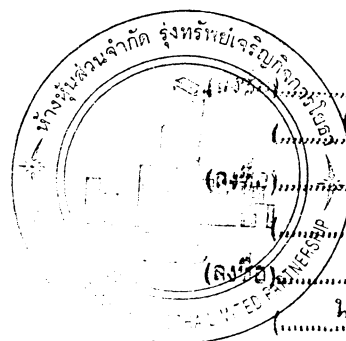 ห้างหุ้นส่วนจำกัด รุ่งทรัพย์เจริญกิจการโยธา
(ลงชื่อ)
(
(ลงชื่อ)
(
(ลงชื่อ)
(
LIMITED PARTNERSHIP